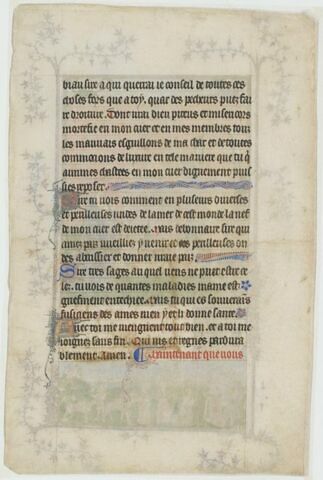 biau sire a qui querrai ie conseil de toutes ces
choses fors que a toy. quar des pecheurs puez fai
re droitur. Dont vrai dieu piteus et misericors
mortefie en mon cuer et en mes membres touz
les mauuais esguillons de ma char et de toutes
commocions de luxure en tele maniere que tu q̃
aimmes chastees en mon cuer dignement puis
ses reposer.
Sire tu vois comment en pluseurs diuerses
et perilleuses undes de la mer de cest monde la nef
de mon cuer est deietee. vous debonnaire sur qui
amez paiz vueilliez y venir et ces perilleuses on
des abaissier et donner vraie paiz
Sire tres sages au quel riens ne puet estre ce
le. tu vois de quantes maladies mame est
griefment entechiee. vous fu qui es souuerais
fusiciens des ames vien y et li donne sante.
Auec toi me viengnent touz bien. et a toi me
ioignez sans fin. Qui vis et regnes pardura
blement. Amen. Maintenant que vous